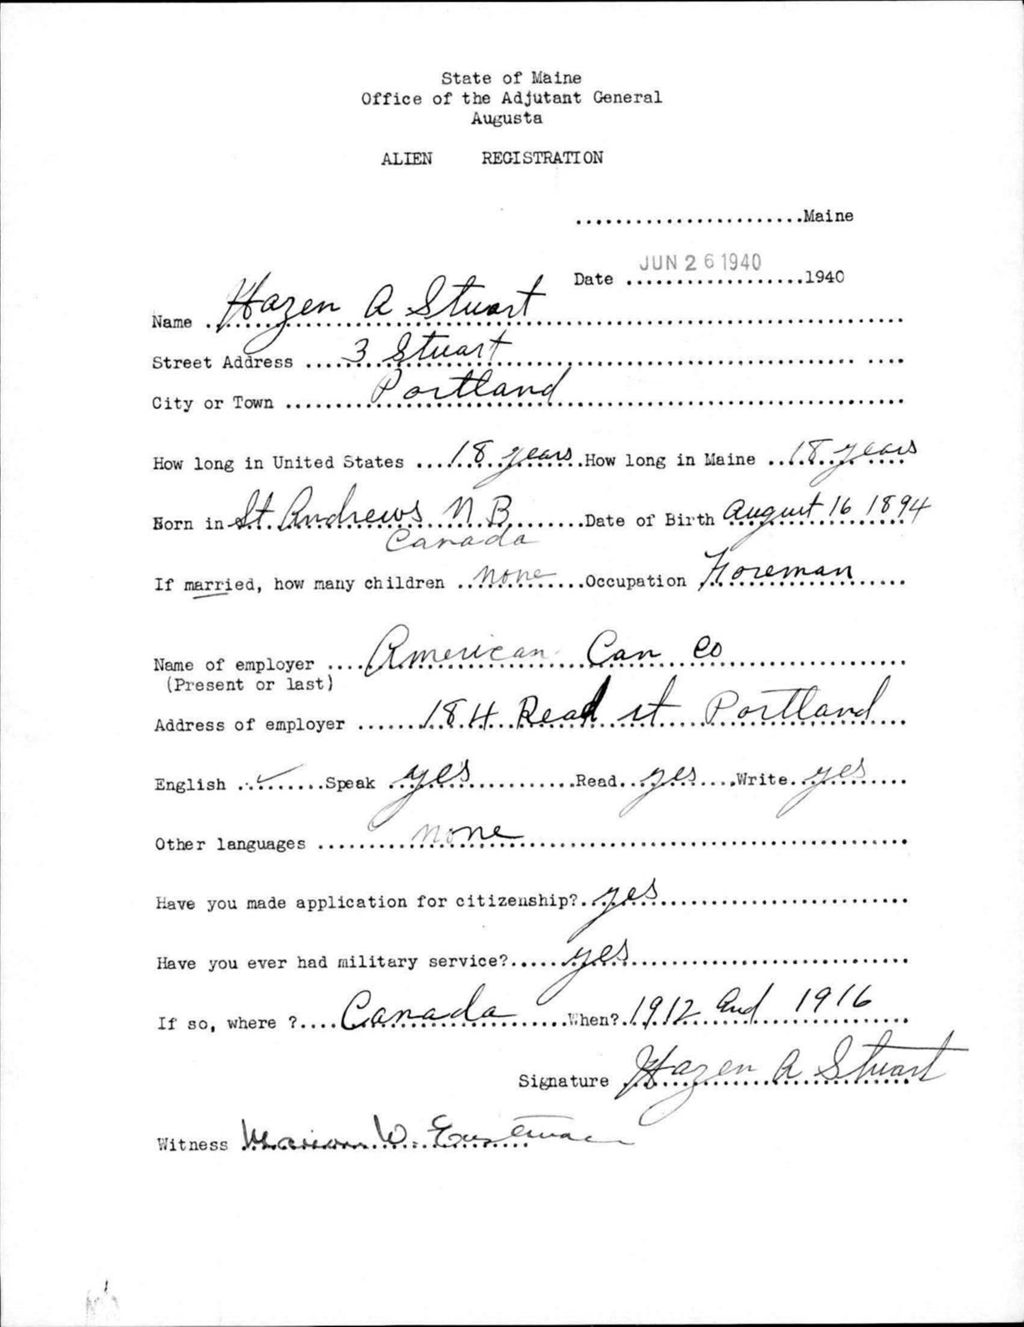 State of Maine
Office of the Adjutant General
Augusta
ALIEN REGISTRATION
.......................Maine
Date JUN 26 1940 ..................1940
Name Hazen A Stuart
Street Address 3 Stuart
City or Town Portland
How long in United States 18 years How long in Maine 18 years
Born in St. Andrews N.B. Date of Birth August 16 1894
Canada
If married, how many children none Occupation Foreman
Name of employer American Can Co
(Present or last)
Address of employer 184 Read st Portland
English ✓ Speak yes Read yes Write yes
Other languages none
Have you made application for citizenship? yes
Have you ever had military service? yes
If so, where ? Canada When? 1912 and 1916
Signature Hazen A Stuart
Witness Marion W.